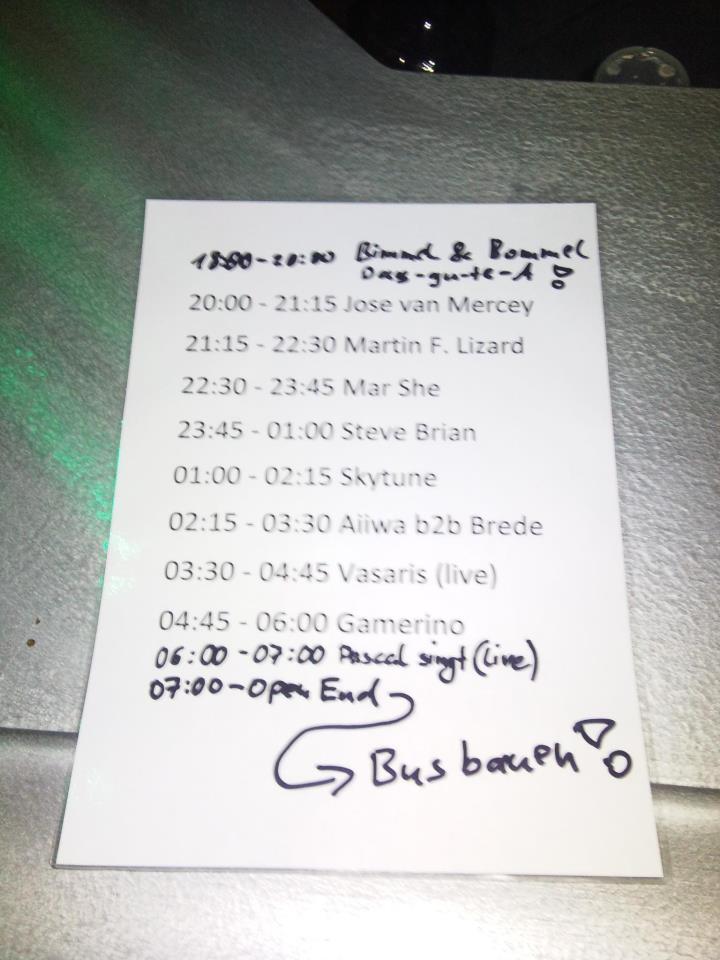 18:00-20:00 Bimmel & Bommel
Das-gute-A!
20:00 - 21:15 Jose van Mercey
21:15 - 22:30 Martin F. Lizard
22:30 - 23:45 Mar She
23:45 - 01:00 Steve Brian
01:00 - 02:15 Skytune
02:15 - 03:30 Aiiwa b2b Brede
03:30 - 04:45 Vasaris (live)
04:45 - 06:00 Gamerino
06:00 - 07:00 Pascal singt (Live)
07:00 - Open End
Bus bauen!